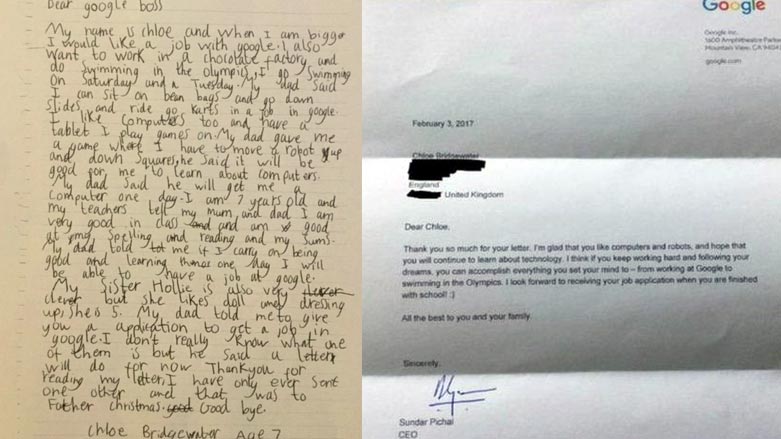 Dear google boss
My name is chloe and when I am bigger
I would like a job with google. I also
want to work in a chocolate factory and
do swimming in the olympics, I go swimming
on Saturday and a Tuesday. My dad said
I can sit on bean bags and go down
slides and ride go karts in a job in google.
I like computers too and have a
tablet I play games on. My dad gave me
a game where I have to move a robot up
and down squares, he said it will be
good for me to learn about computers.
My dad said he will get me a
computer one day. I am 7 years old and
my teachers tell my mum and dad I am
very good in class and am good
at my spelling and reading and my sums.
My dad told me if I carry on being
good and learning one day I will
be able to have a job at google.
My Sister Hollie is also very
clever but she likes doll dressing
up, she is 5. My dad told me to give
you a application to get a job in
google. I don't really know what one
of them is but he said a letter
will do for now Thankyou for
reading my letter, I have only ever sent
one other and that was to
Father christmas. Good bye.
Chloe Bridgewater Age 7
Google
Google Inc.
1600 Amphitheatre
Mountain View, CA
google.com
February 3, 2017
Chloe Bridgewater
England
United Kingdom
Dear Chloe,
Thank you so much for your letter. I'm glad that you like computers and robots, and hope that
you will continue to learn about technology. I think if you keep working hard and following your
dreams, you can accomplish everything you set your mind to – from working at Google to
swimming in the Olympics. I look forward to receiving your job application when you are finished
with school! :)
All the best to you and your family.
Sincerely,
Sundar Pichai
CEO